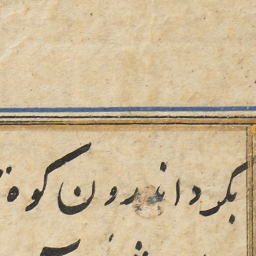 بکرد اندرون کوه